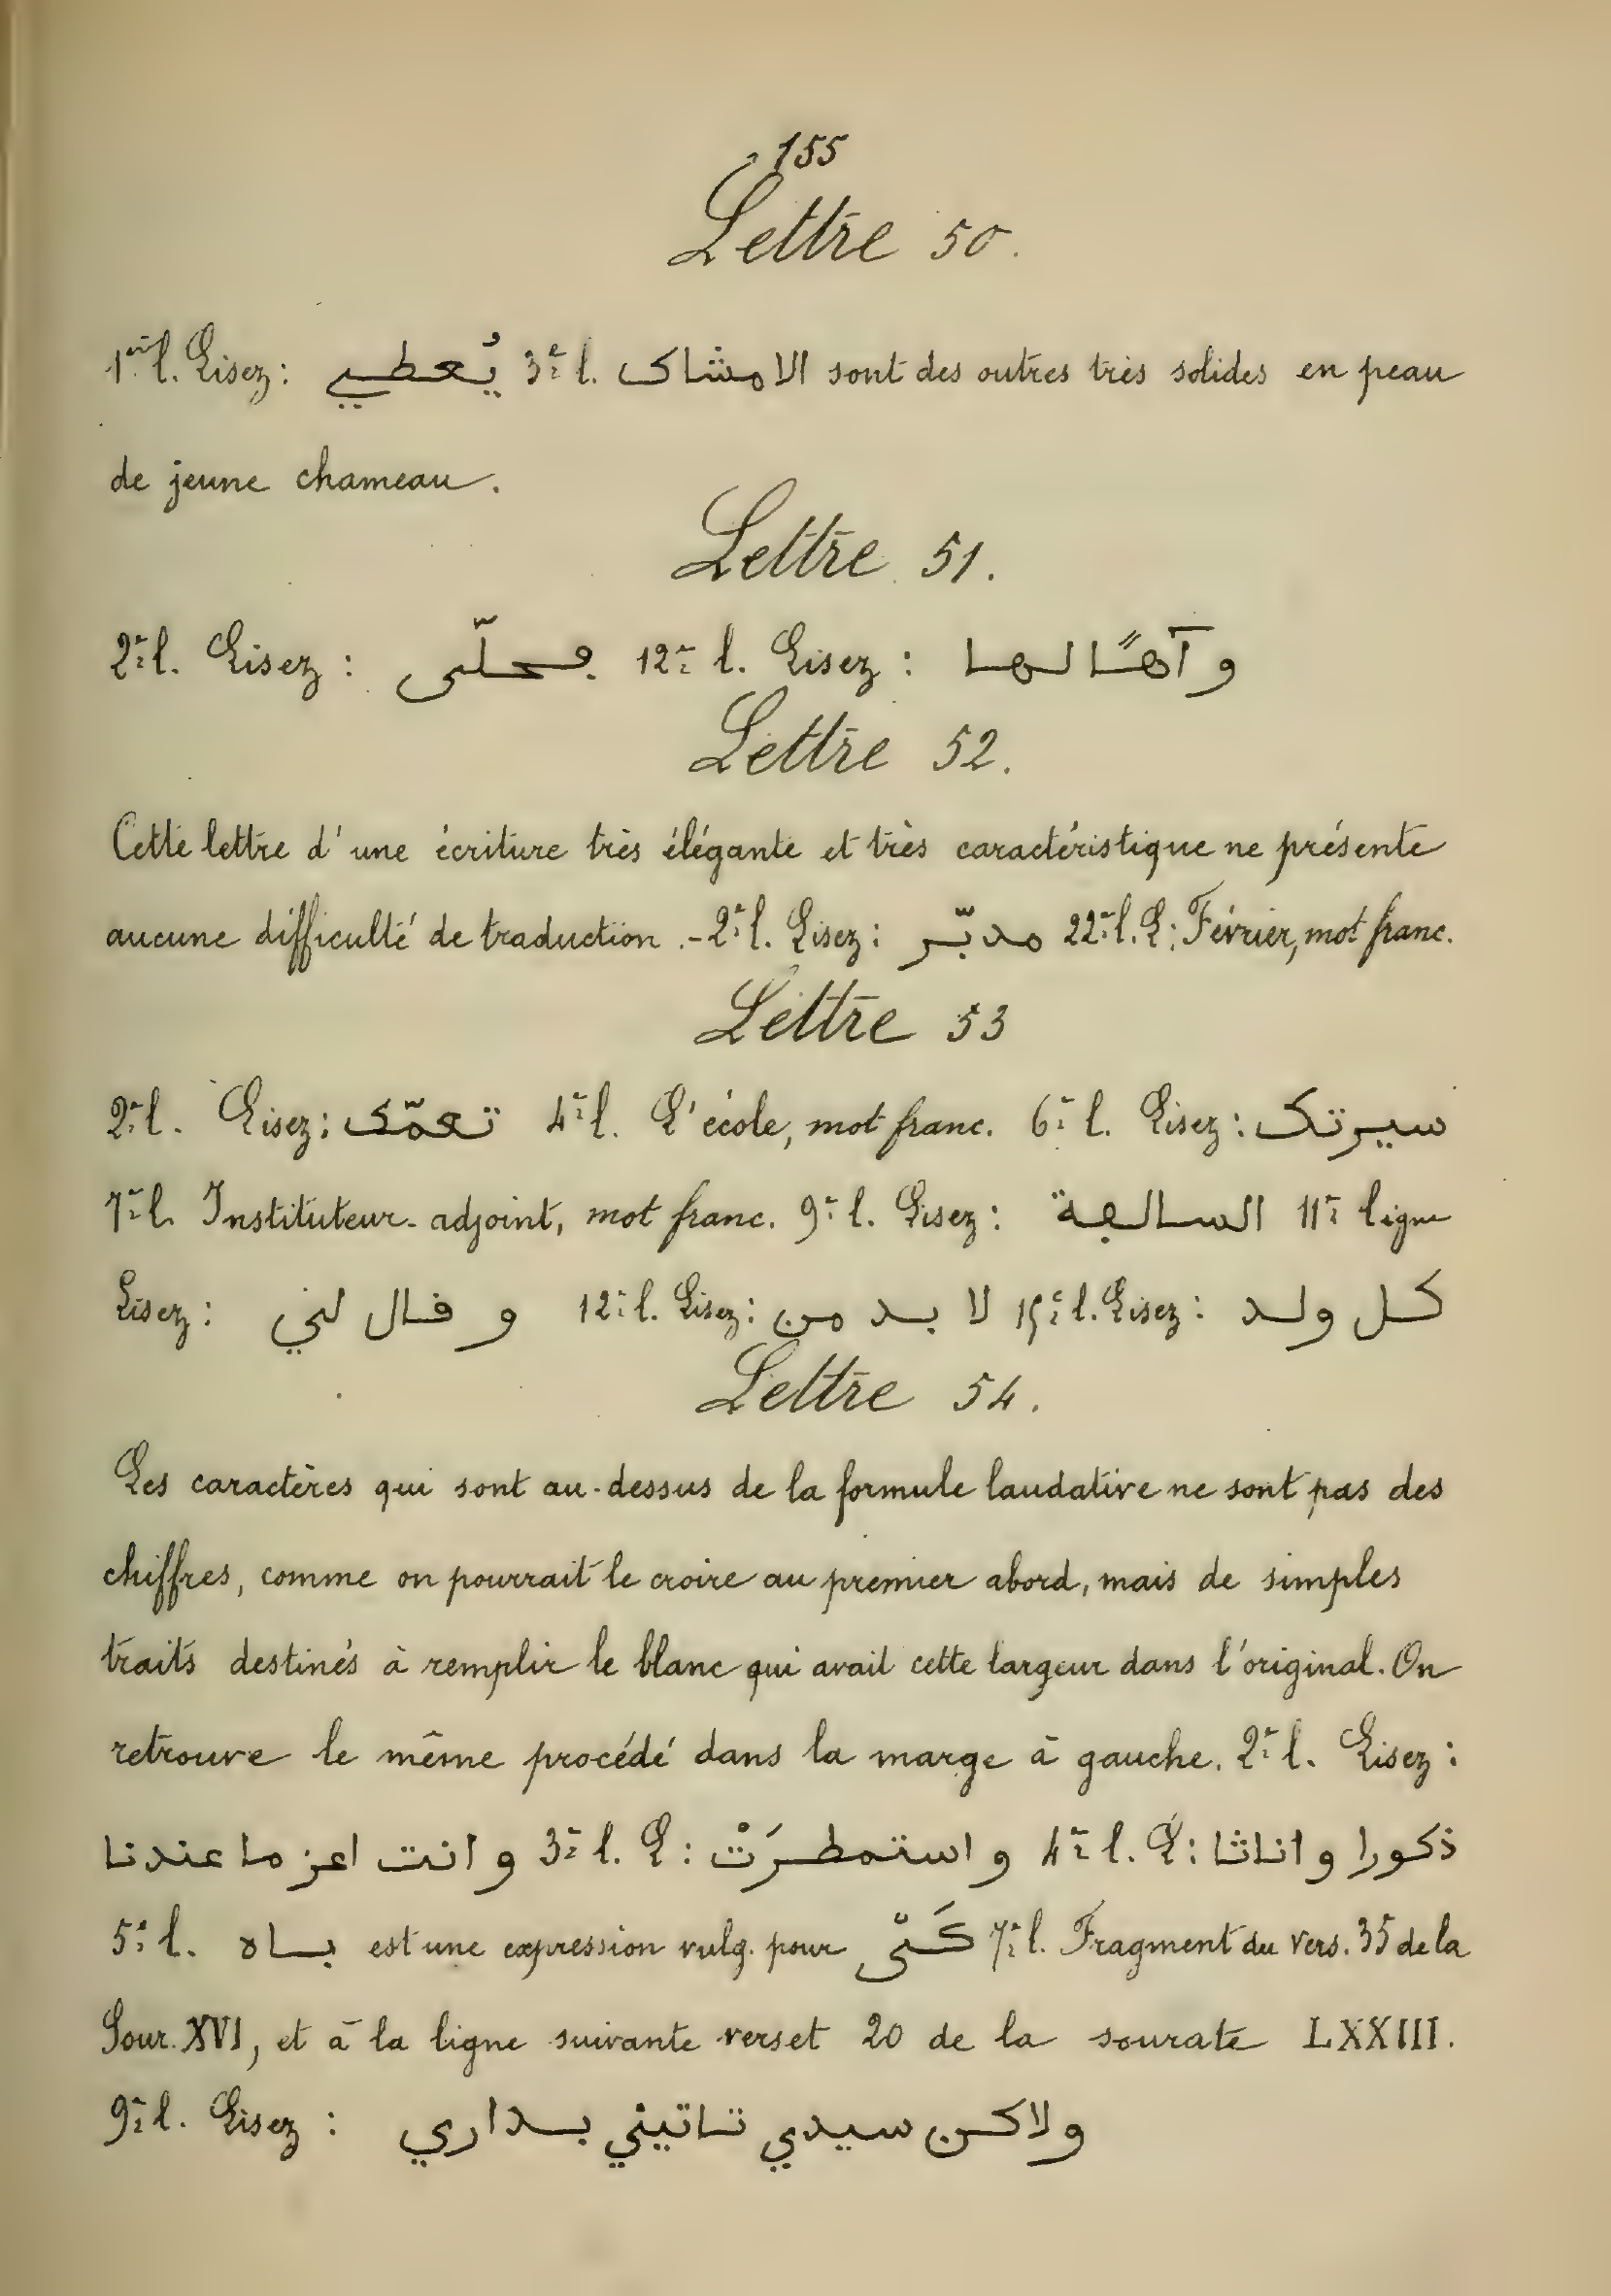 155
Lettre 50.
1ère l. Lisez : يُعطيي 3è l. الامشاك sont des outres très solides en peau
de jeune chameau.
Lettre 51.
2è l. Lisez : 12è l. Lisez :
Lettre 52.
Cette lettre d'une écriture très élégante et très caractéristique ne présente
aucune difficulté de traduction. - 2è l. Lisez : مدبّر 22è l. L : Février, mot franc.
Lettre 53
2è l. Lisez : 4è l. L'école, mot franc. 6è l. Lisez : سيرتك
7è l. Instituteur-adjoint, mot franc. 9è l. Lisez : 11è ligne
Lisez : و ڧال لني 12è l. Lisez : لا بد من 15è l. Lisez : كل ولد
Lettre 54.
Les caractères qui sont au-dessus de la formule laudative ne sont pas des
chiffres, comme on pourrait le croire au premier abord, mais de simples
traits destinés à remplir le blanc qui avait cette largeur dans l'original. On
retrouve le même procédé dans la marge à gauche. 2è l. Lisez :
و انت اعز ما عندنا 3è l. L : و استمطرَتْ 4è l. L : ذكورا و اناثا
5è l. باه est une expression vulg. pour كَيْ 7è l. Fragment du vers. 35 de la
Sour. XVI, et à la ligne suivante verset 20 de la sourate LXXIII.
9è l. Lisez : ولاكن سيدي تاتيني بداري